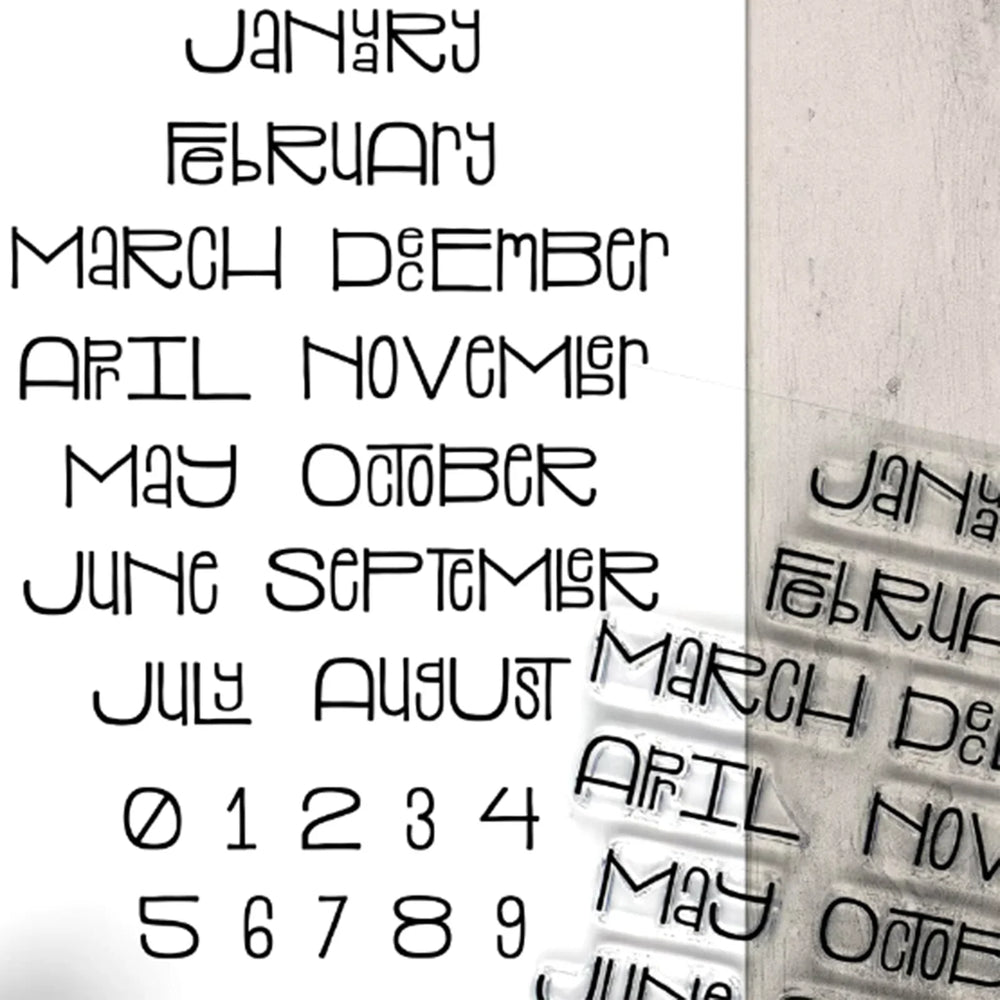 JaNuaRy
FebRUAry
MaRCH DecEmBer
APrIL NOVeMber
MaY OCTOBeR
JUNe SePTeMbeR
JuLy AugUST
0 1 2 3 4
5 6 7 8 9
JaNua
FebRUA
MaRCH Dec
APrIL NOV
MaY OCTOB
JUNe